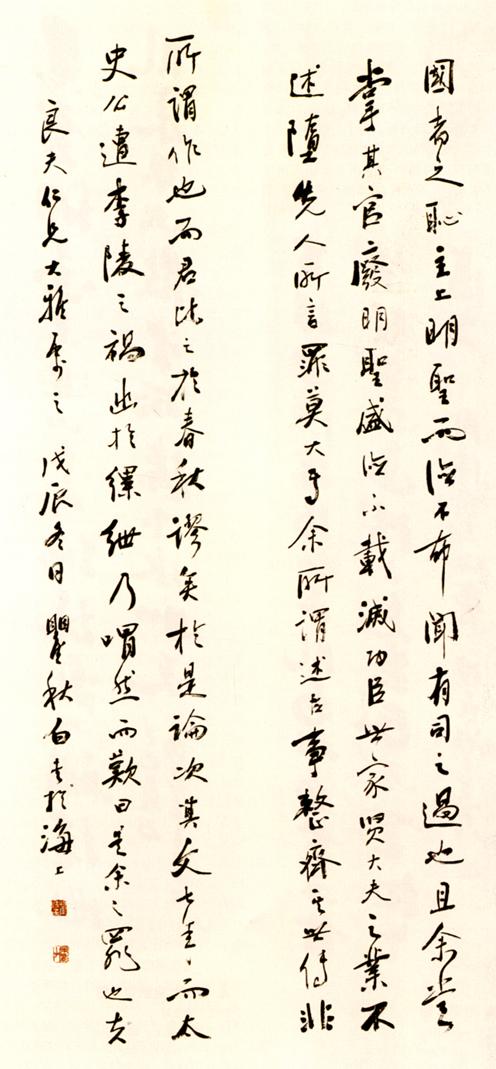 國者之恥主上明聖而德不布聞有司之過也且余嘗
掌其官廢明聖盛德不載滅功臣世家賢大夫之業不
述墮先人所言罪莫大焉余所謂述故事整齊其世傳非
所謂作也而君比之於春秋謬矣於是論次其文七年而太
史公遭李陵之禍幽於縲紲乃喟然而歎曰是余之罪也夫
良夫仁兄大雅屬之 戊辰冬日 瞿秋白書於海上